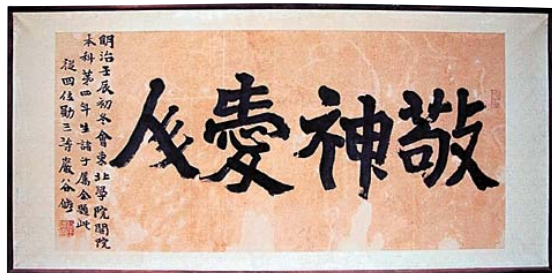 敬神愛人
明治壬辰初冬會東北學院開院
本科第四年生諸子屬余題此
從四位勲三等巖谷修